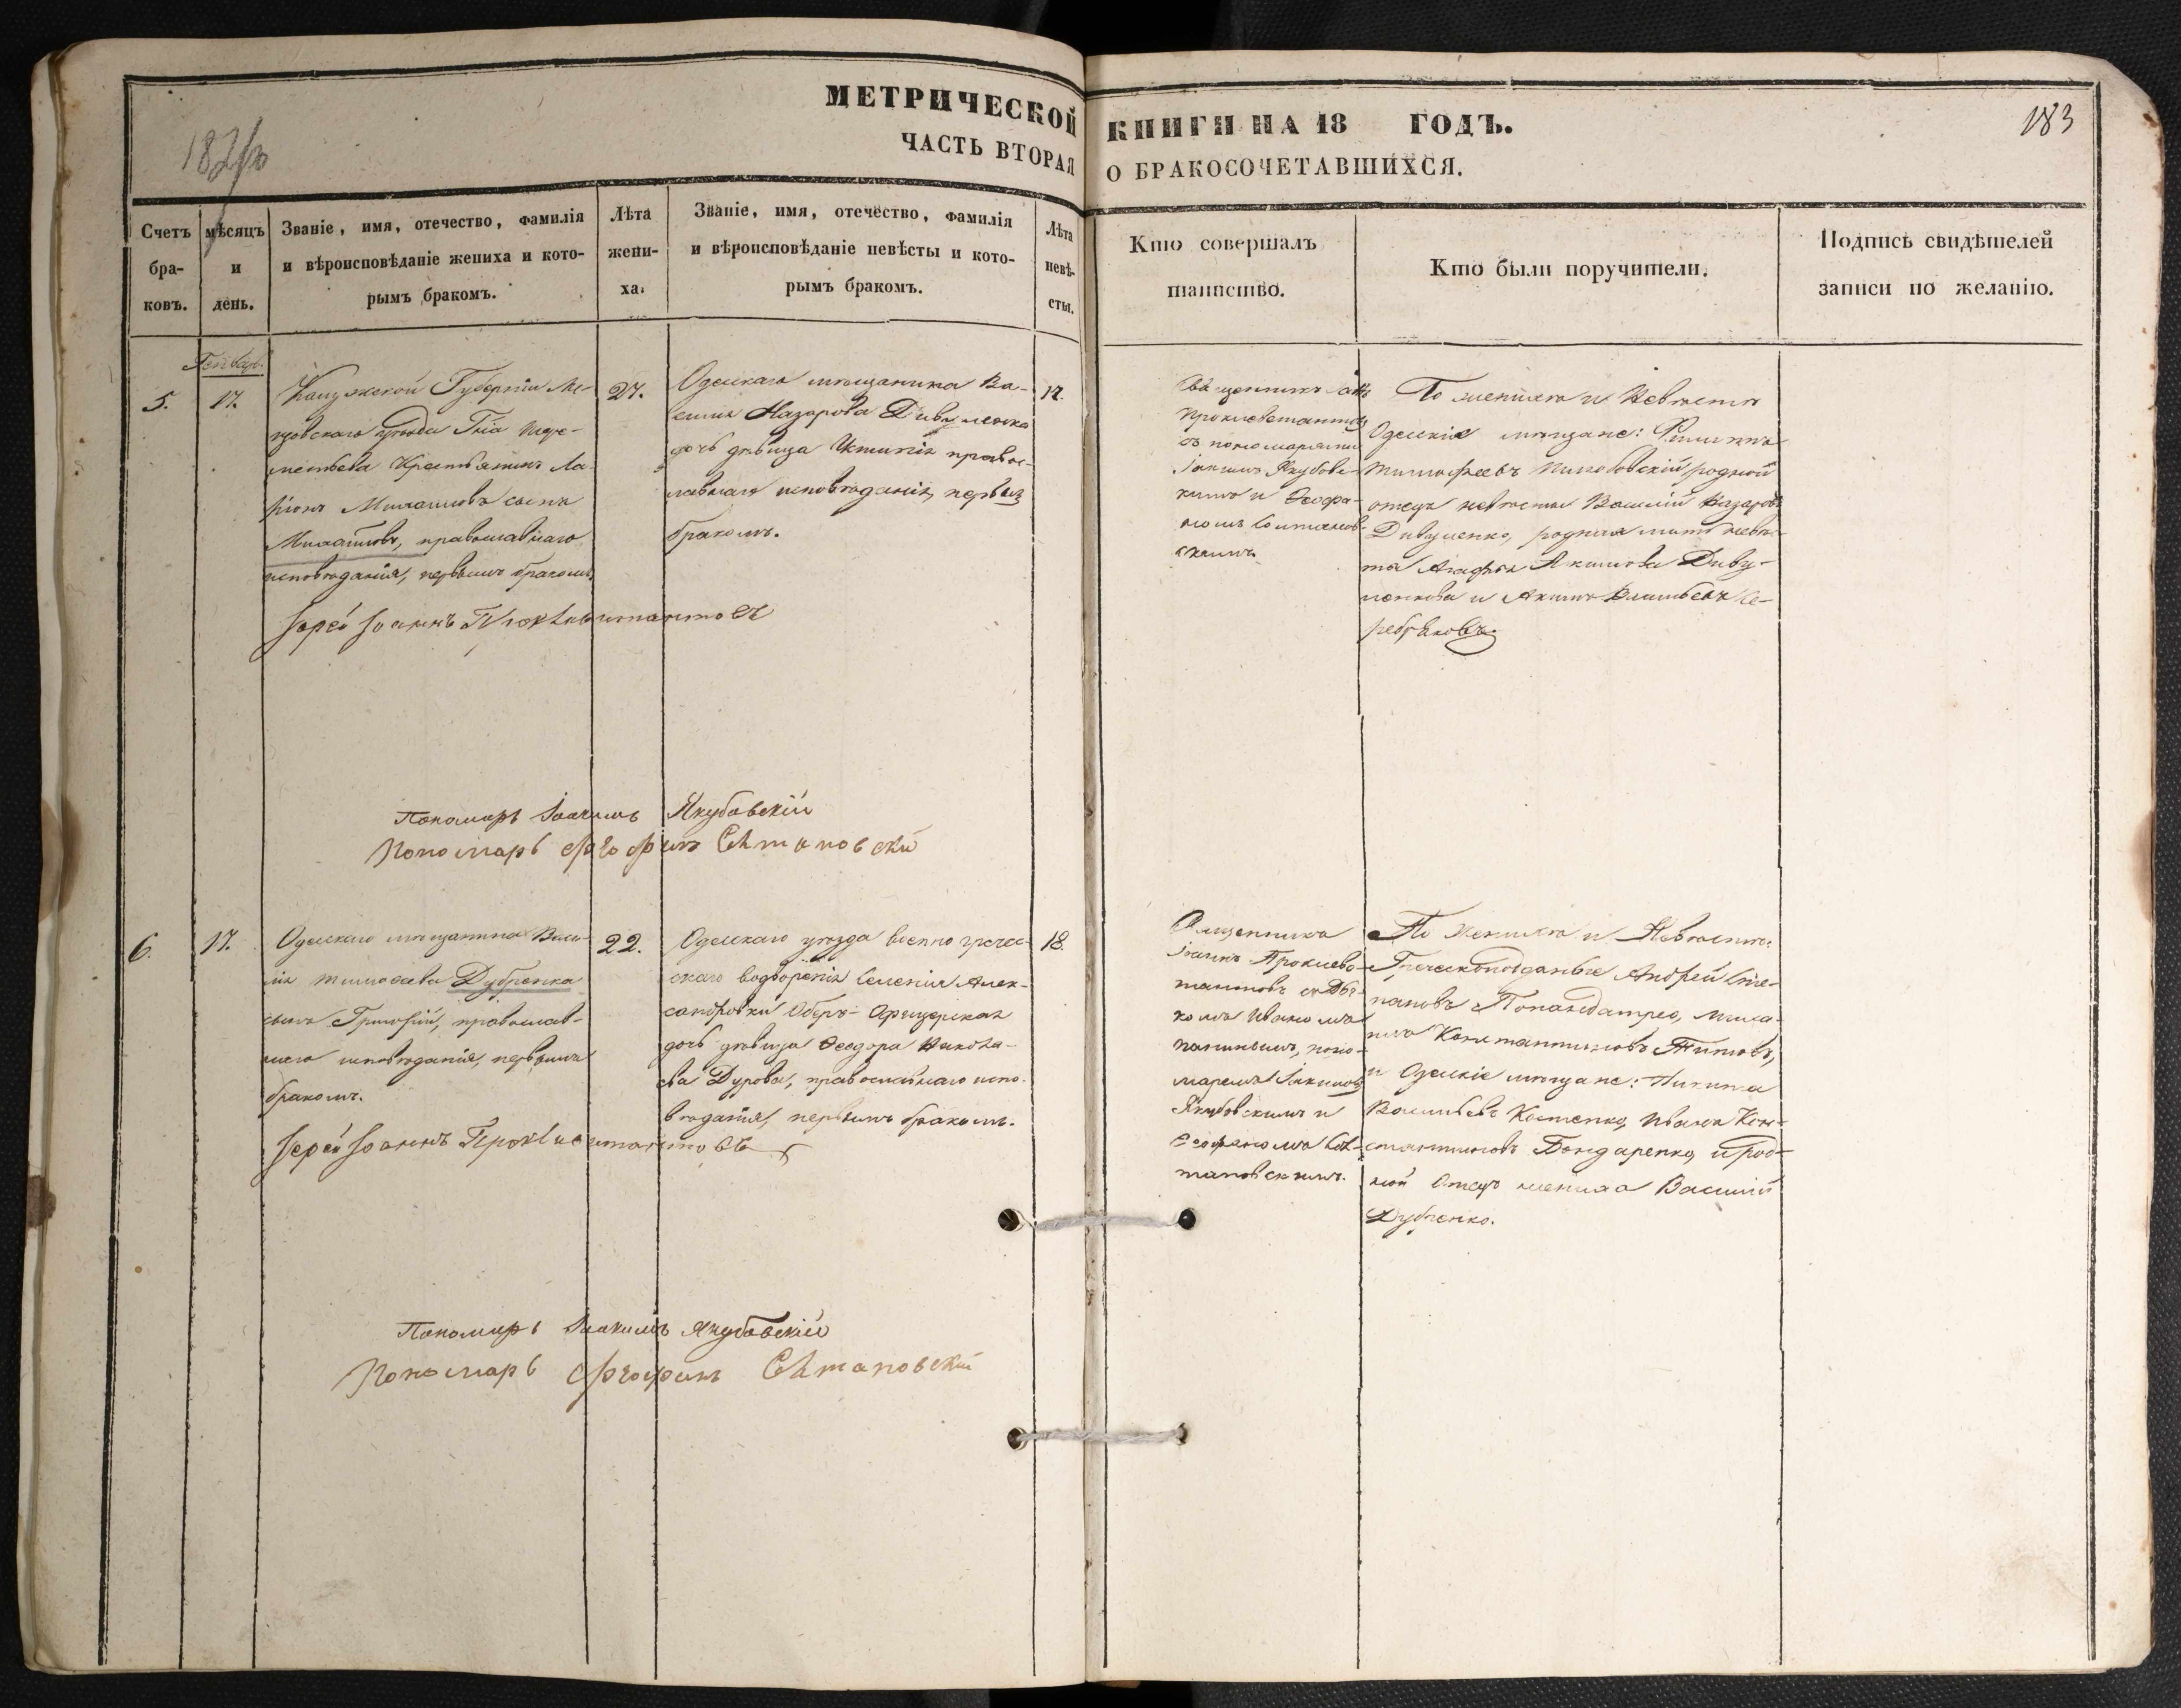 МЕТРИЧЕСКОЙ КНИГИ НА 18 ГОДЪ.
ЧАСТЬ ВТОРАЯ О БРАКОСОЧЕТАВШИХСЯ.
183
Счетъ бра- ковъ.
мѣсяцъ и день.
Званіе, имя, отечество, фамилія
и вѣроисповѣданіе жениха и кото-
рымъ бракомъ.
Лѣта
жени-
ха.
Званіе, имя, отечество, фамилія
и вѣроисповѣданіе невѣсты и кото-
рымъ бракомъ.
Лѣта
невѣ-
сты.
Кто совершалъ
таинство.
Кто были поручители.
Подпись свидѣтелей
записи по желанію.
Генвар.
5.
17.
Калужской Губерніи Ме-
щовскаго уѣзда
Крестьянинъ Ла-
ріонъ сынъ
православнаго
исповѣданія, первымъ бракомъ.
27.
Одесскаго мѣщанина Ва-
силія Назарова Дивуленка
дочь дѣвица Устинія правос-
лавнаго исповѣданія, первымъ
бракомъ.
17.
Священникъ
Проклеветантовъ
съ пономарями
Іакимъ Якубовс-
кимъ и Ѳеофа-
номъ
скимъ
По женихѣ и Невѣстѣ
Одесскіе мѣщане:
Тимофеевъ родной
отецъ невѣсты Василій Назаровъ
Дивуленко, родная мать невѣс-
ты Агафья Акимова Диву-
ленкова и Акимъ Васильевъ Се-
ребряковъ.
Іерей Іоаннъ Проклевитантовъ
Пономарь Іоакимъ Якубовскій
Пономарь Ѳеофанъ Сѣтановскій
6.
17.
Одесскаго мѣщанина Васи-
лія Тимофеева Дубренка
сынъ Григорій, православ-
наго исповѣданія, первымъ
бракомъ.
22.
Одесскаго уѣзда военно гречес-
скаго водворенія Селенія Алек-
сандровки Оберъ-Офицерская
дочь дѣвица Ѳеодора Иакова-
ева Дурова, православнаго испо-
вѣданія, первымъ бракомъ.
18.
Священникъ
Іоаннъ Проклеве-
тантовъ съ Дья-
комъ Иваномъ
поно-
маремъ Іакимомъ
Якубовскимъ и
Ѳеофаномъ Сѣ-
тановскимъ.
По Женихѣ и Невѣстѣ:
Греческоподданые Андрей Сте-
пановъ Попандатрео,
Константиновъ Титовъ,
и Одесскіе мѣщане: Никита
Васильевъ Костенко, Иванъ Кон-
стантиновъ Бондаренко, и род-
ной Отецъ жениха Василій
Дубренко.
Іерей Іоаннъ Проклевитантовъ
Пономарь Іоакимъ Якубовскій
Пономарь Ѳеофанъ Сѣтановскій